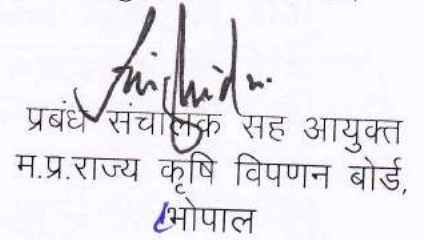 प्रबंध संचालक सह आयुक्त
म.प्र.राज्य कृषि विपणन बोर्ड,
भोपाल